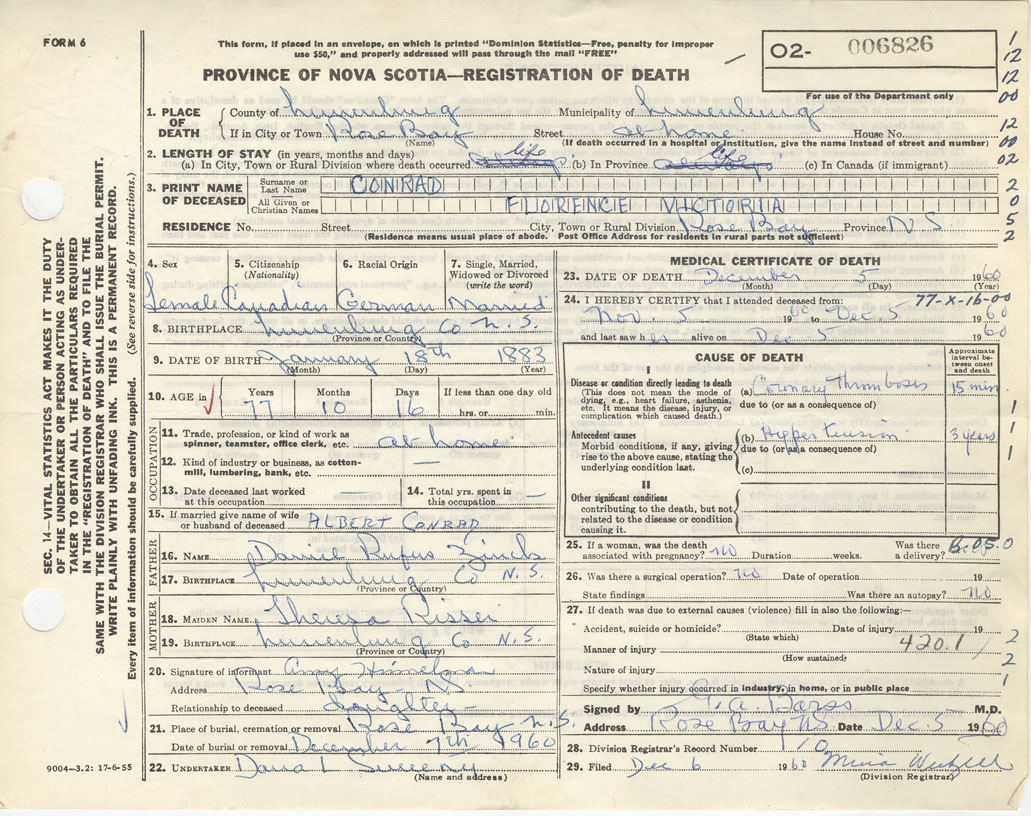 FORM 6
This form, if placed in an envelope, on which is printed "Dominion Statistics—Free, penalty for improper
use $50," and properly addressed will pass through the mail "FREE"
PROVINCE OF NOVA SCOTIA—REGISTRATION OF DEATH
O2- 006826
For use of the Department only
1
12
12
00
12
00
02
2
0
5
2
1. PLACE OF DEATH
County of Lunenburg Municipality of Lunenburg
If in City or Town Rose Bay Street at home House No.
(Name) (If death occurred in a hospital or institution, give the name instead of street and number)
2. LENGTH OF STAY (in years, months and days)
(a) In City, Town or Rural Division where death occurred life (b) In Province life (c) In Canada (if immigrant)
3. PRINT NAME OF DECEASED
Surname or Last Name CONRAD
All Given or Christian Names FLORENCE VICTORIA
RESIDENCE No. Street City, Town or Rural Division Rose Bay Province N S
(Residence means usual place of abode. Post Office Address for residents in rural parts not sufficient)
4. Sex 5. Citizenship (Nationality) 6. Racial Origin 7. Single, Married, Widowed or Divorced (write the word)
Female Canadian German Married
8. BIRTHPLACE Lunenburg Co N.S.
(Province or Country)
9. DATE OF BIRTH January 18th 1883
(Month) (Day) (Year)
10. AGE in Years Months Days If less than one day old
77 10 16 hrs. or min.
OCCUPATION
11. Trade, profession, or kind of work as
spinner, teamster, office clerk, etc. at home
12. Kind of industry or business, as cotton-
mill, lumbering, bank, etc. —
13. Date deceased last worked
at this occupation —
14. Total yrs. spent in
this occupation —
15. If married give name of wife
or husband of deceased ALBERT CONRAD
FATHER
16. NAME Daniel Rufus Zinck
17. BIRTHPLACE Lunenburg Co N.S.
(Province or Country)
MOTHER
18. MAIDEN NAME Theresa Risser
19. BIRTHPLACE Lunenburg Co N.S.
(Province or Country)
20. Signature of informant Amy
Address Rose Bay NS
Relationship to deceased daughter
21. Place of burial, cremation or removal Rose Bay N.S.
Date of burial or removal December 7th 1960
22. UNDERTAKER
(Name and address)
MEDICAL CERTIFICATE OF DEATH
23. DATE OF DEATH December 5 1960
(Month) (Day) (Year)
24. I HEREBY CERTIFY that I attended deceased from: 77-X-16-00
Nov. 5 1960 to Dec 5 1960
and last saw her alive on Dec 5 1960
CAUSE OF DEATH
Approximate interval between onset and death
I
Disease or condition directly leading to death
(This does not mean the mode of dying, e.g., heart failure, asthenia, etc. It means the disease, injury, or complication which caused death.)
(a) Coronary Thrombosis 15 min
due to (or as a consequence of)
Antecedent causes
Morbid conditions, if any, giving rise to the above cause, stating the underlying condition last.
(b) Hypertension 3 years
due to (or as a consequence of)
(c)
1
1
1
II
Other significant conditions
contributing to the death, but not related to the disease or condition causing it.
25. If a woman, was the death
associated with pregnancy? no Duration weeks. Was there a delivery?
26. Was there a surgical operation? no Date of operation 19
State findings Was there an autopsy? no
27. If death was due to external causes (violence) fill in also the following:—
Accident, suicide or homicide? Date of injury 19
(State which)
Manner of injury 420.1
(How sustained)
Nature of injury
2
2
1
Specify whether injury occurred in industry, in home, or in public place
Signed by G. A. Barss M.D.
Address Rose Bay NS Date Dec 5 1960
28. Division Registrar's Record Number 10
29. Filed Dec 6 1960
(Division Registrar)
9004—3.2: 17-6-55
SEC. 14—VITAL STATISTICS ACT MAKES IT THE DUTY
OF THE UNDERTAKER OR PERSON ACTING AS UNDER-
TAKER TO OBTAIN ALL THE PARTICULARS REQUIRED
IN THE "REGISTRATION OF DEATH" AND TO FILE THE
SAME WITH THE DIVISION REGISTRAR WHO SHALL ISSUE THE BURIAL PERMIT.
WRITE PLAINLY WITH UNFADING INK. THIS IS A PERMANENT RECORD.
Every item of information should be carefully supplied. (See reverse side for instructions.)